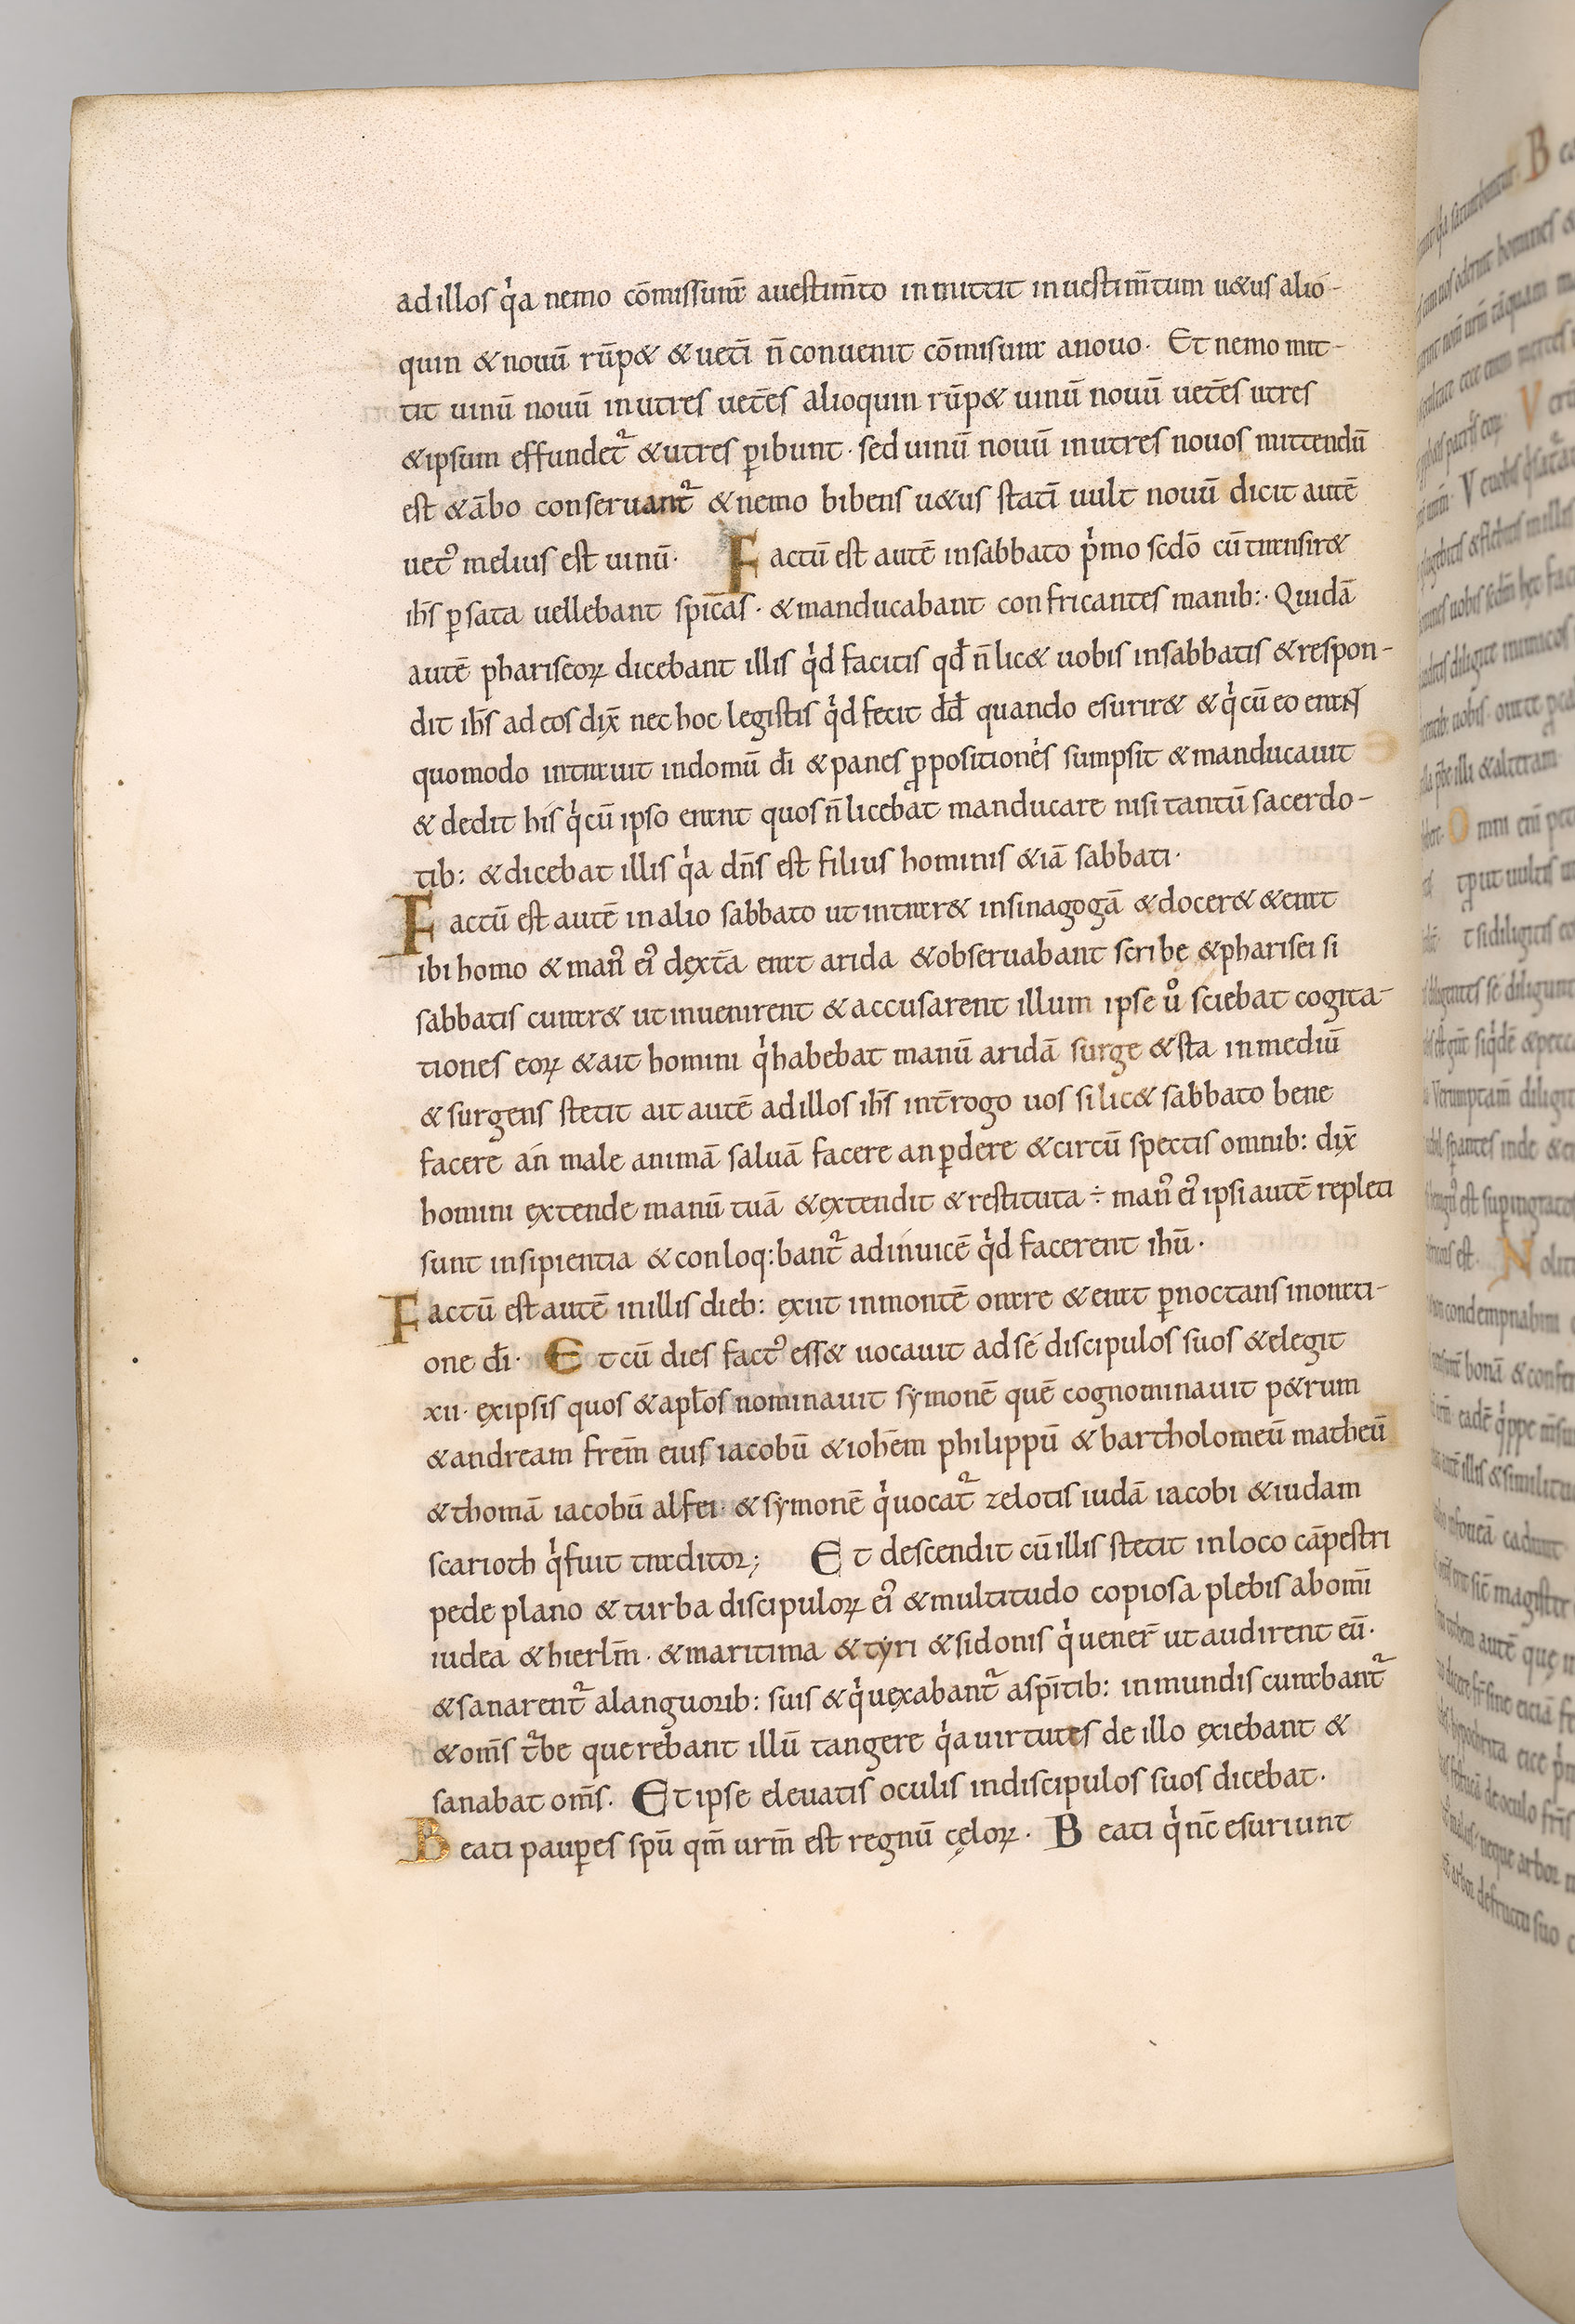 ad illos qͥa nemo cōmissurā auestim̄to inmittit inuestim̄tum u&us alio-
quin & nouū rūp& & uetī n̄ conuenit cōmisura anouo· Et nemo mit-
tit uinū nouū inutres uet̄es alioquin rūp& uinū nouū uet̄es utres
& ipsum effundet᷑ & utres ꝑibunt· sed uinū nouū inutres nouos mittendū
est & ābo conseruant᷑ & nemo bibens u&us statī uult nouū dicit autē
uetꝰ melius est uinū· Factū est autē insabbato pͥmo scdō cū transir&
ih̄s ꝑ sata uellebant spicas· & manducabant confricantes manib:· Quidā
autē phariseoꝝ dicebant illis qͥd facitis qd̄ n̄ lic& uobis insabbatis & respon-
dit ih̄s ad eos dix̄ nec hoc legistis qͥd fecit dd̄ quando esurir& & qͥ cū eo erant
quomodo intrauit indomū dī & panes ꝓpositionis sumpsit & manducauit
& dedit his qͥ cū ipso erant quos n̄ licebat manducare nisi tantū sacerdo-
tib: & dicebat illis qͥa dn̄s est filius hominis & iā sabbati·
Factū est autē in alio sabbato ut intrar& insinagogā & docer& & erat
ibi homo & manꝰ eiꝰ dęxt̄a erat arida & obseruabant scribe & pharisei si
sabbatis curar& ut inuenirent & accusarent illum ipse uͦ sciebat cogita-
tiones eoꝝ & ait homini qͥ habebat manū aridā surge & sta inmediū
& surgens stetit ait autē ad illos ih̄s int̄rogo uos si lic& sabbato bene
facere an male animā saluā facere an ꝑdere & circū spectis omnib: dix̄
homini ęxtende manū tuā & ęxtendit & restituta ÷ manꝰ eiꝰ ipsi autē repleti
sunt insipientia & conloq:bant᷑ adinuicē qͥd facerent ihū·
Factū est autē inillis dieb: ęxiit inmontē orare & erat ꝑnoctans inorati-
one dī· Et cū dies factꝰ ess& uocauit ad se discipulos suos & elegit
xii· ęxipsis quos & apl̄os nominauit symonē quē cognominauit p&rum
& andream frem̄ eius iacobū & iohēm philippū & bartholomeū matheū
& thomā iacobū alfei· & symonē qͥ uocat᷑ zelotis iudā iacobi & iudam
scarioth qͥ fuit traditor; Et descendit cū illis stetit inloco cāpestri
pede plano & turba discipuloꝝ eiꝰ & multitudo copiosa plebis abomī
iudea & hierlm̄· & maritima & tyri & sidonis qͥ uener̄ ut audirent eū·
& sanarent᷑ alanguorib: suis & qͥ uęxabant᷑ aspītib: inmundis curabant᷑
& om̄s t᷑be querebant illū tangere qͥa uirtutes de illo ęxiebant &
sanabat om̄s. Et ipse eleuatis oculis indiscipulos suos dicebat·
Beati pauꝑes spū qm̄ urm̄ est regnū cęloꝝ· Beati qͥ nc̄ esuriunt